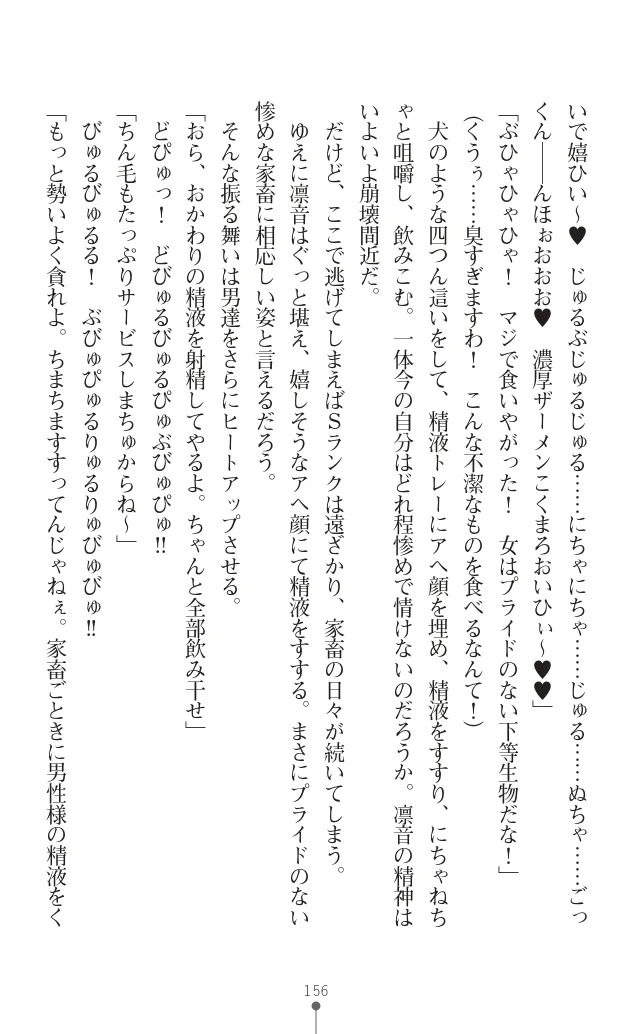 いで嬉ひい～♥　じゅるぶじゅるじゅる……にちゃにちゃ……じゅる……ぬちゃ……ごっ
くん――んほぉおおお♥　濃厚ザーメンこくまろおいひぃ～♥♥」
「ぶひゃひゃひゃ！　マジで食いやがった！　女はプライドのない下等生物だな！」
(くうぅ……臭すぎますわ！　こんな不潔なものを食べるなんて！)
　犬のような四つん這いをして、精液トレーにアヘ顔を埋め、精液をすすり、にちゃねち
ゃと咀嚼し、飲みこむ。一体今の自分はどれ程惨めで情けないのだろうか。凛音の精神は
いよいよ崩壊間近だ。
　だけど、ここで逃げてしまえばＳランクは遠ざかり、家畜の日々が続いてしまう。
　ゆえに凛音はぐっと堪え、嬉しそうなアヘ顔にて精液をすする。まさにプライドのない
惨めな家畜に相応しい姿と言えるだろう。
　そんな振る舞いは男達をさらにヒートアップさせる。
「おら、おかわりの精液を射精してやるよ。ちゃんと全部飲み干せ」
　どぴゅっ！　どびゅるびゅるぴゅぶびゅぴゅ!!
「ちん毛もたっぷりサービスしまちゅからね～」
　びゅるびゅるる！　ぶびゅぴゅるりゅるりゅびゅびゅ!!
「もっと勢いよく貪れよ。ちまちますすってんじゃねぇ。家畜ごときに男性様の精液をく
156